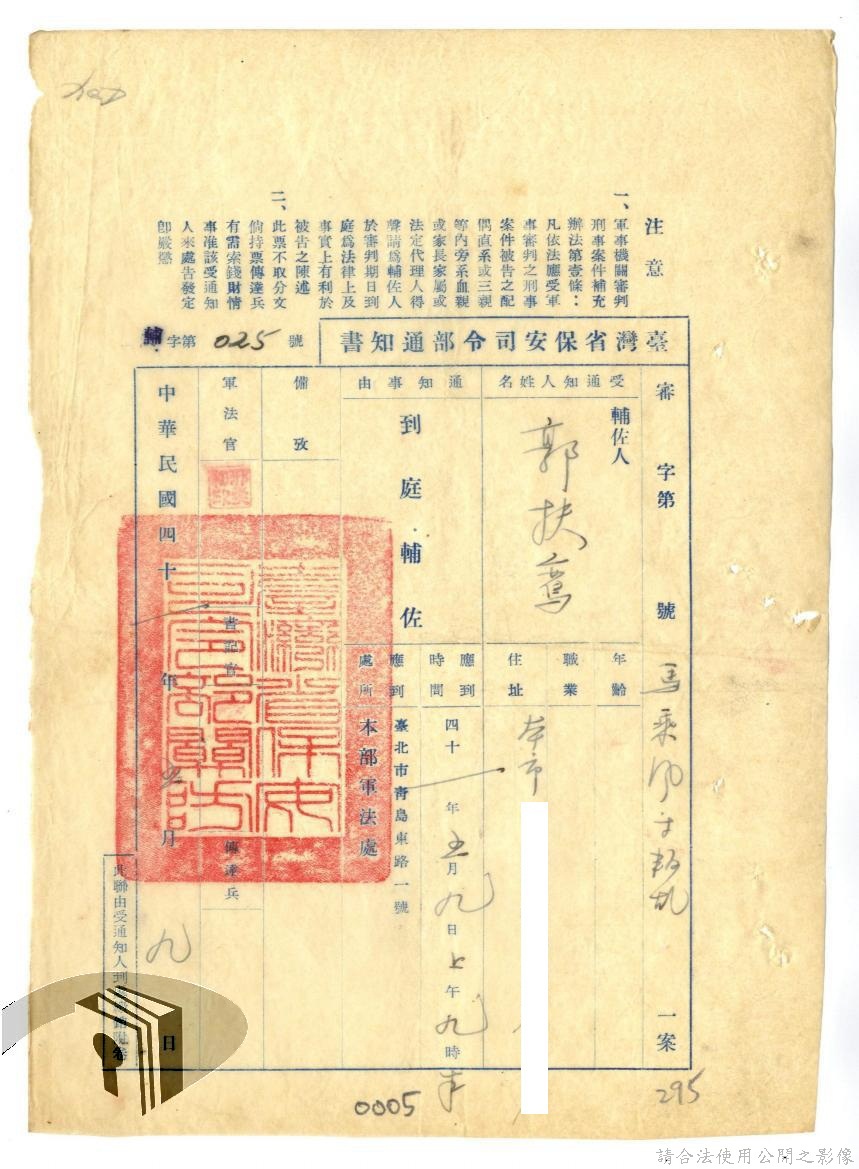 注意
一、軍事機關審判
刑事案件補充
辦法第壹條：
凡依法應受軍
事審判之刑事
案件被告之配
偶直系或三親
等內旁系血親
或家長家屬或
法定代理人得
聲請為輔佐人
於審判期日到
庭為法律上及
事實上有利於
被告之陳述
二、此票不取分文
倘持票傳達兵
有需索錢財情
事准該受通知
人來處告發定
卽嚴懲
臺灣省保安司令部通知書
輔字第025號
審字第 號 馬乘風 叛亂 一案
受通知人姓名
輔佐人
郭扶鶱
年齡
職業
住址
本市
通知事由
到庭輔佐
應到時間
四十年五月九日上午九時半
應到處所
臺北市青島東路一號
本部軍法處
備攷
軍法官
書記官
傳達兵
臺灣省保安司令部關防
中華民國四十年五月九日
此聯由受通知人到
0005
295
請合法使用公開之影像